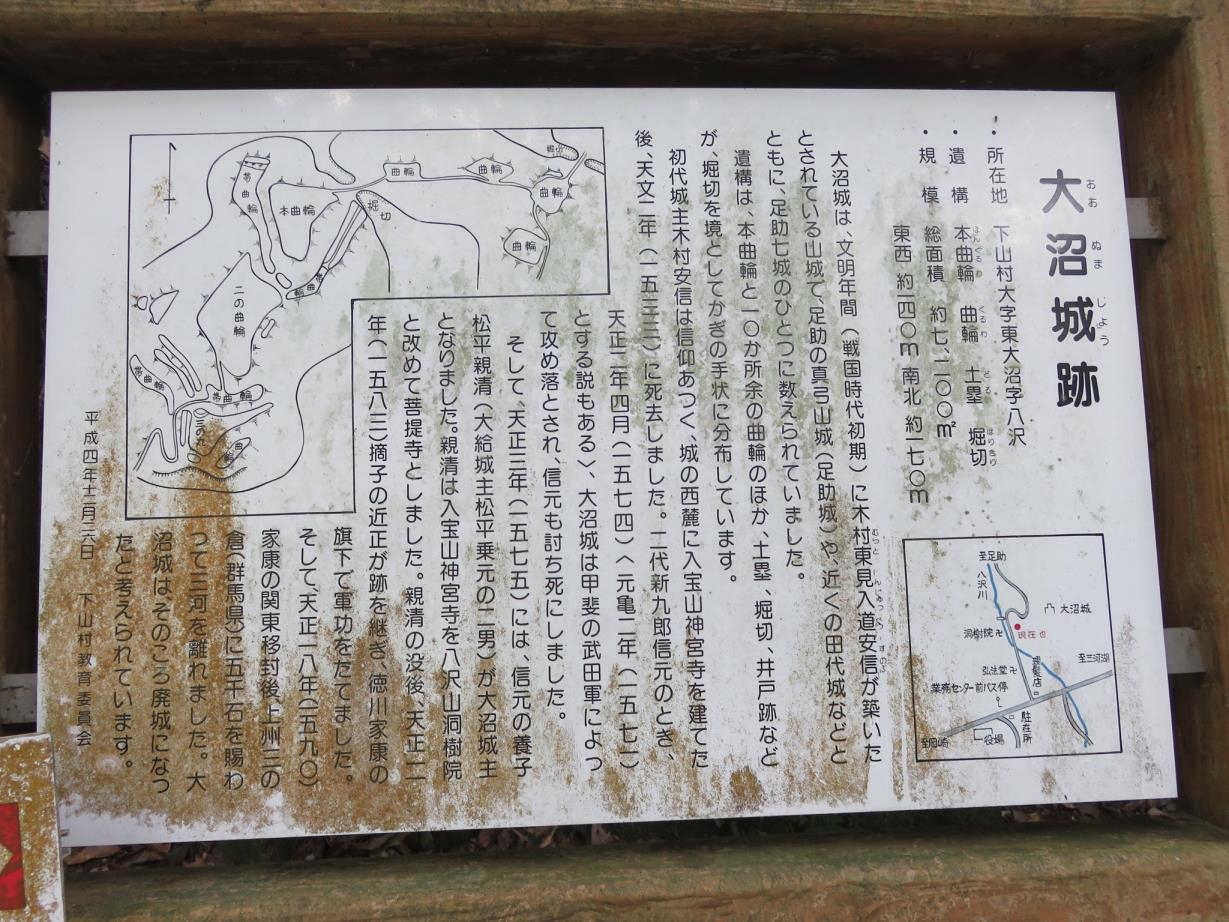 大沼城跡
おお ぬま じょう
・所在地 下山村大字東大沼字八沢
・遺構 本曲輪 曲輪 土塁 堀切
ほんぐるわ くるわ どるい ほりきり
・規模 総面積 約七、二〇〇㎡
東西 約一四〇m 南北 約一七〇m
大沼城は、文明年間(戦国時代初期)に木村東見入道安信が築いた
とされている山城で、足助の真弓山城(足助城)や、近くの田代城などと
ともに、足助七城のひとつに数えられていました。
遺構は、本曲輪と一〇か所余の曲輪のほか、土塁、堀切、井戸跡など
が、堀切を境としてかぎの手状に分布しています。
初代城主木村安信は信仰あつく、城の西麓に入宝山神宮寺を建てた
後、天文二年(一五三三)に死去しました。二代新九郎信元のとき、
天正二年四月(一五七四)〈元亀二年(一五七一)
とする説もある〉、大沼城は甲斐の武田軍によっ
て攻め落とされ、信元も討ち死にしました。
そして、天正三年(一五七五)には、信元の養子
松平親清(大給城主松平乗元の二男)が大沼城主
となりました。親清は入宝山神宮寺を八沢山洞樹院
と改めて菩提寺としました。親清の没後、天正一一
年(一五八三)摘子の近正が跡を継ぎ、徳川家康の
旗下で軍功をたてました。
そして、天正一八年(一五九〇)
家康の関東移封後、上州三の
倉(群馬県)に五千石を賜わ
って三河を離れました。大
沼城はそのころ廃城になっ
たと考えられています。
平成四年十二月二六日 下山村教育委員会
帯曲輪
本曲輪
曲輪
曲輪
曲輪
曲輪
堀切
曲輪
二の曲輪
帯曲輪
帯曲輪
曲輪
至足助
八沢川
大沼城
洞樹院
現在地
至三河湖
弘法堂
理髪店
業務センター前バス停
駐在所
役場
至岡崎